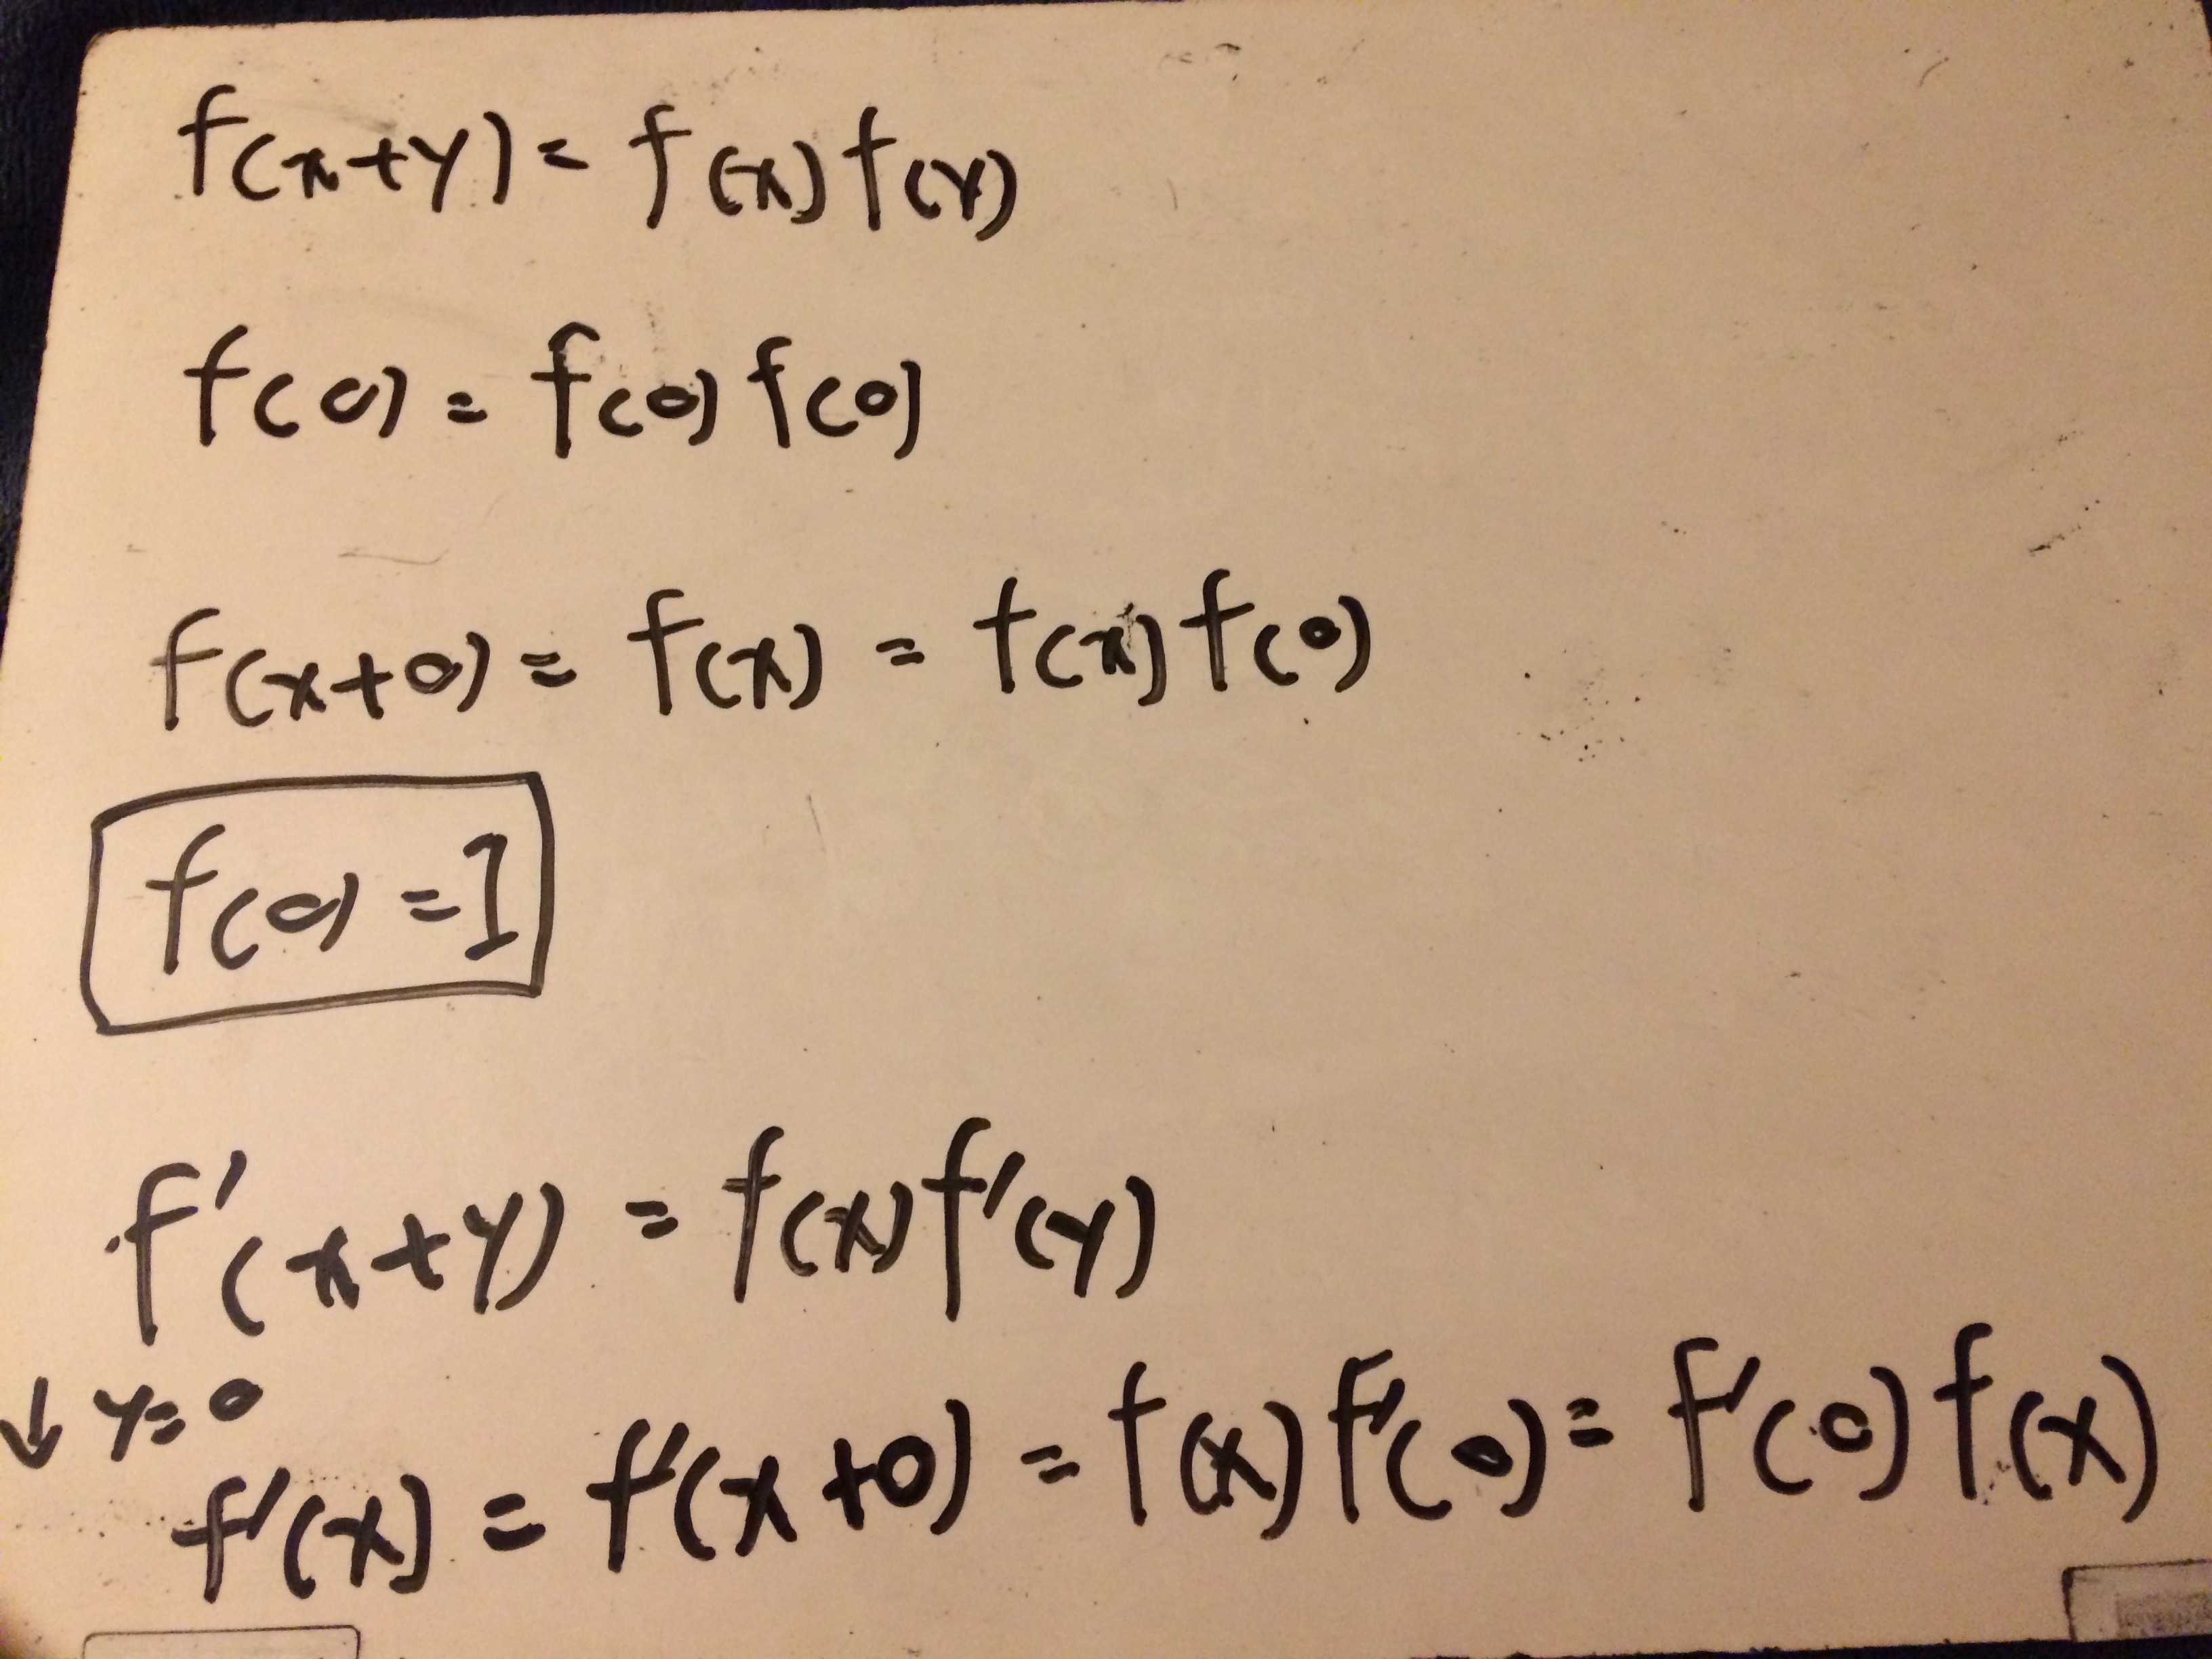 f(x+y) = f(x) f(y)
f(0) = f(0) f(0)
f(x+0) = f(x) = f(x) f(0)
f(0) = 1
f'(x+y) = f(x) f'(y)
↓ y=0
f'(x) = f'(x+0) = f(x) f'(0) = f'(0) f(x)